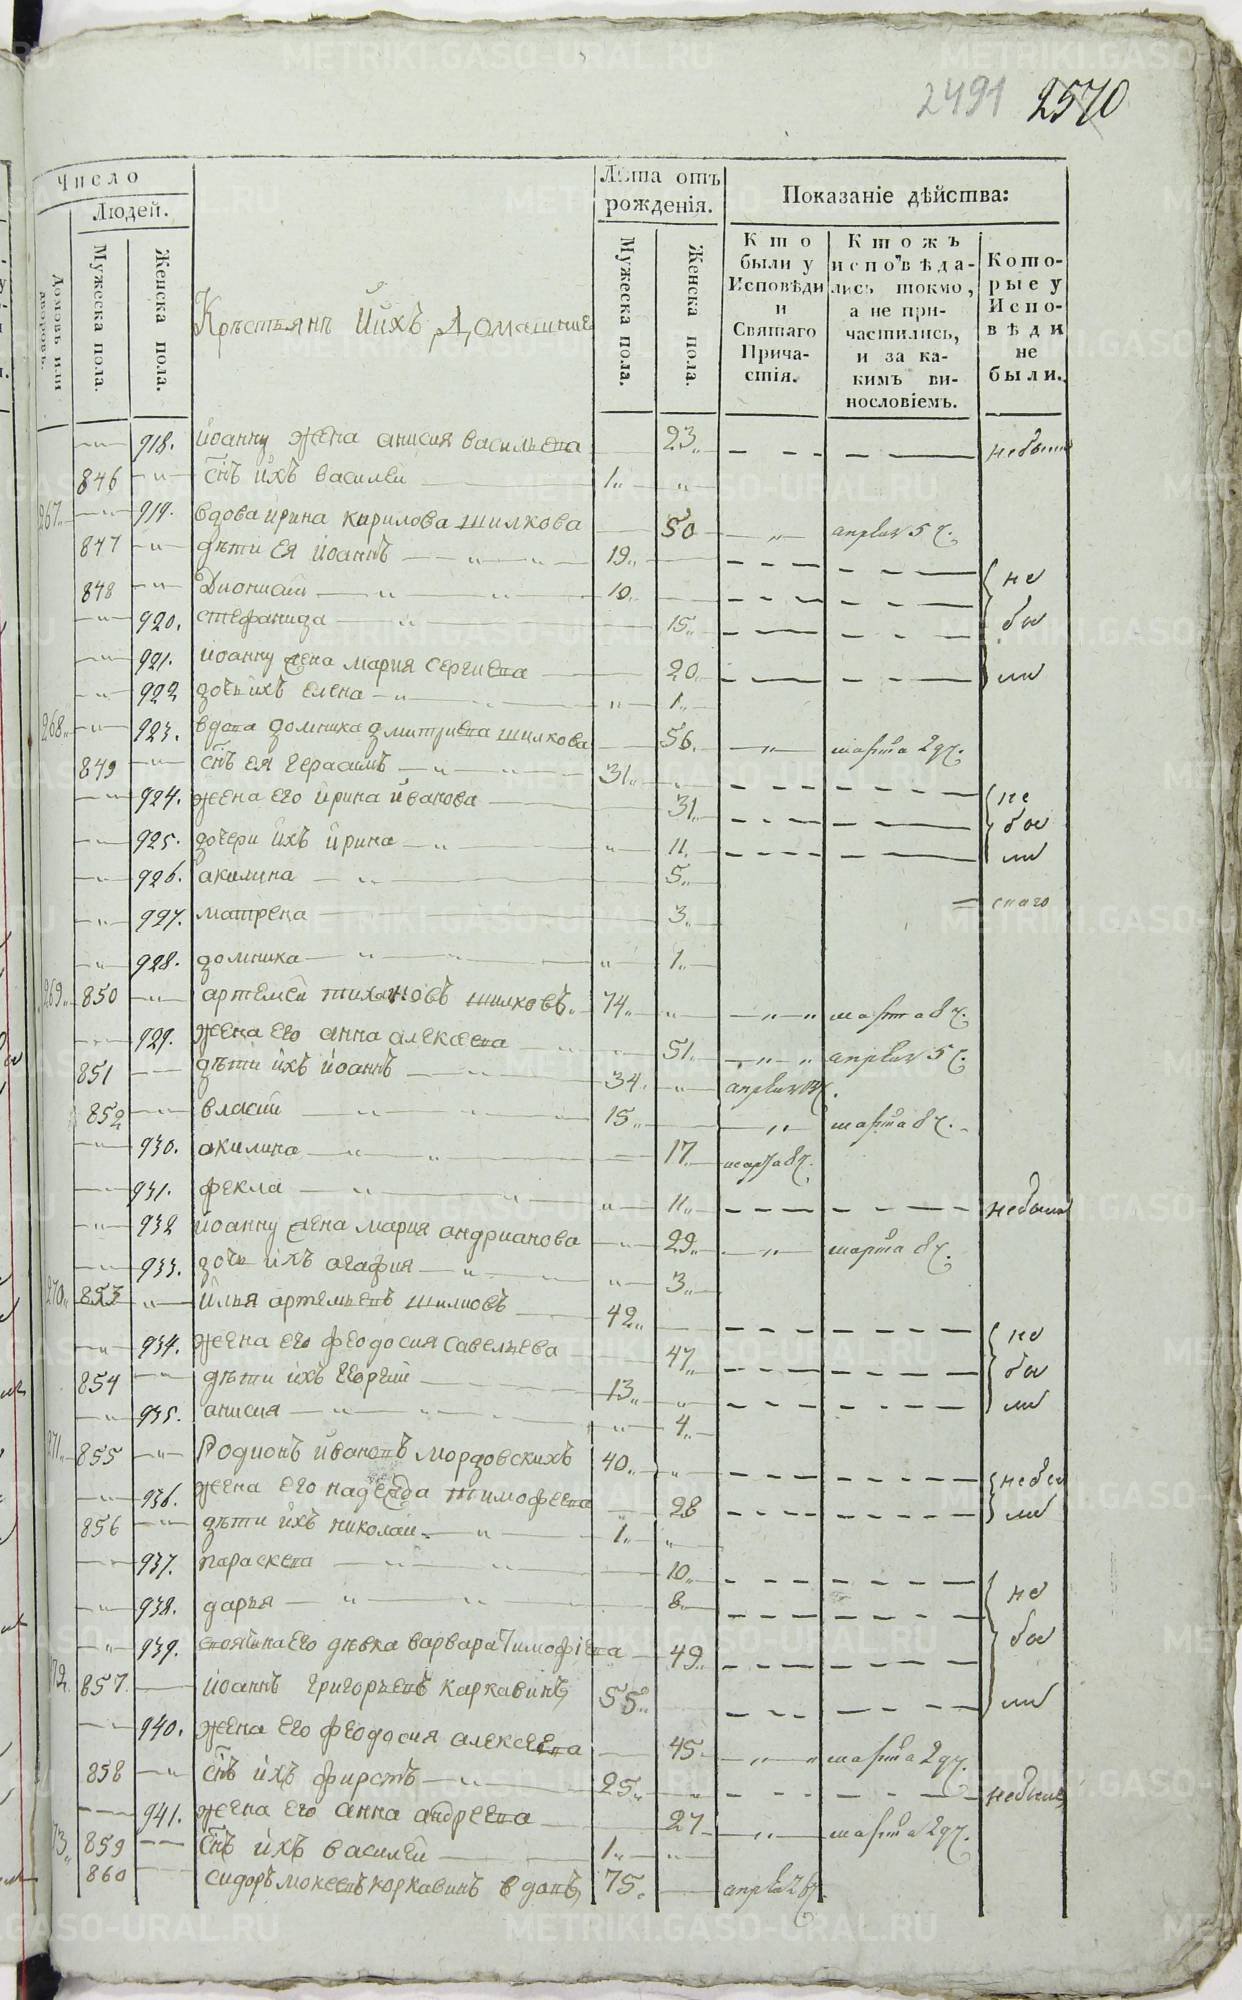 2491 2570
Число
Людей.
Домовъ или дворовъ.
Мужеска пола.
Женска пола.
Крѣстьянъ ӣ ихъ Домашние
Лѣта отъ рожденія.
Мужеска пола.
Женска пола.
Показаніе дѣйства:
Кто были у Исповѣди и Святаго Причастія.
Ктожъ исповѣдались токмо, а не причастились, и за какимъ винословіемъ.
Которые у Исповѣди не были.
918. Иоанну жена анисия василиева 23 небыли
846 сн҃ъ ихъ василеи 1
267 919. вдова ирина кирилова шилкова 50 апреля 5 ч.
847 дѣти ея иоаннъ 19
848 Дионисии 10 не
920. стефанида 15 бы
921. иоанну жена мария сергиева 20 ли
922 дочь ихъ елена 1
268 923. вдова домника дмитриева шилкова 56 марта 29 ч.
849 сн҃ъ ея герасимъ 31
924. жена его ирина иванова 31 не
925. дочери ихъ ирина 11 бы
926. акилина 5 ли
927. матрена 3
928. домника 1
269 850 артемеи тихановъ шилковъ 74 марта 8 ч.
929. жена его анна алексеева 51 апреля 5 ч.
851 дѣти ихъ иоаннъ 34
852 власии 15 марта 8 ч.
930. акилина 17 марта 8 ч.
931. фекла 11 небыли
932 иоанну жена мария андрианова 29 марта 8 ч.
933. дочь ихъ агафия 3
270 853 илья артемьевъ шилковъ 42
934. жена его феодосия савельева 47 не
854 дѣти ихъ георгии 13 бы
935. анисия 4 ли
271 855 Родионъ ивановъ мордовскихъ 40
936. жена его надежда тимофеева 28 небы
856 дѣти ихъ николаи 1 ли
937. параскева 10
938. дарья 8 не
939. его дѣвка варвара Тимофіева 49 бы
72 857 иоаннъ григорьевъ каркавинъ 55 ли
940. жена его феодосия алексеева 45 марта 29 ч.
858 сн҃ъ ихъ фирстъ 25 небыли
941. жена его анна андреева 27 марта 29 ч.
73 859 сн҃ъ ихъ василеи 1
860 сидоръ мокеевъ коркавинъ вдовъ 75
METRIKI.GASO-URAL.RU